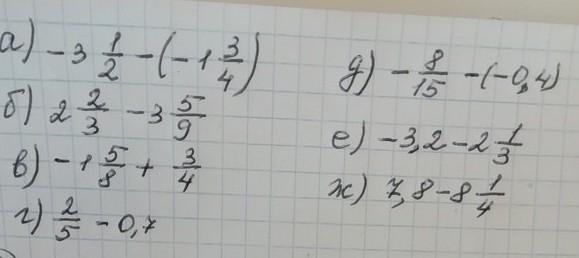 а) -3 1/2 - (-1 3/4)
б) 2 2/3 - 3 5/9
в) -1 5/8 + 3/4
г) 2/5 - 0,7
д) - 8/15 - (-0,4)
е) -3,2 - 2 1/3
ж) 7,8 - 8 1/4